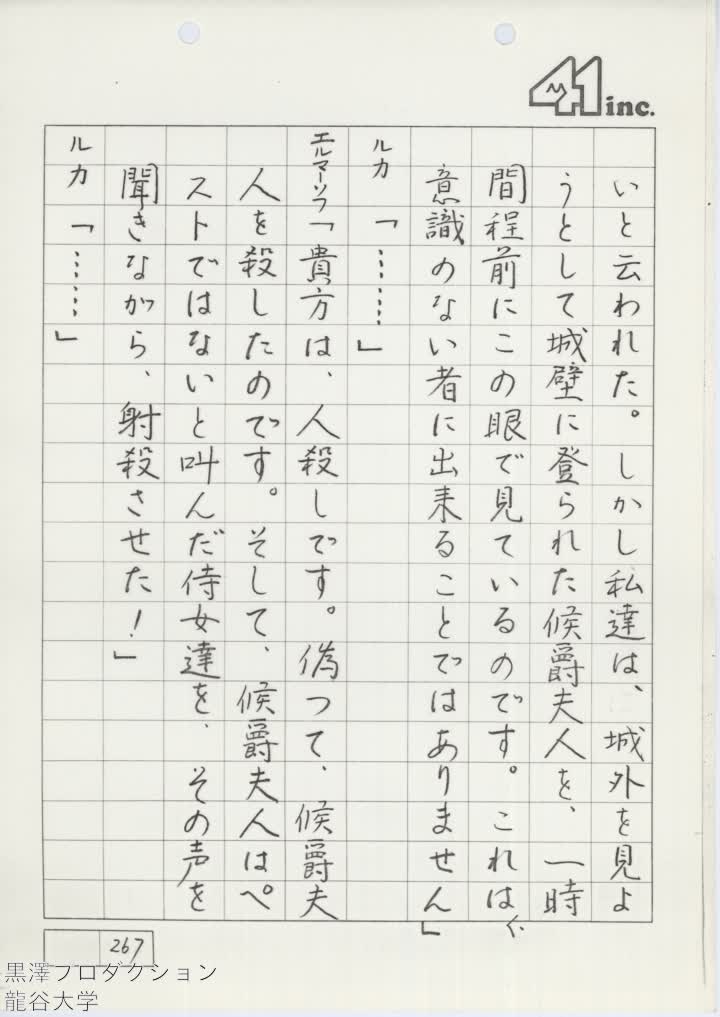 41 inc.
いと云われた。しかし私達は、城外を見よ
うとして城壁に登られた候爵夫人を、一時
間程前にこの眼で見ているのです。これは
意識のない者に出来ることではありません」
ルカ「……」
エルマーソフ「貴方は、人殺しです。偽つて、候爵夫
人を殺したのです。そして、候爵夫人はペ
ストではないと叫んだ侍女達を、その声を
聞きながら、射殺させた！」
ルカ「……」
267
黒澤プロダクション
龍谷大学